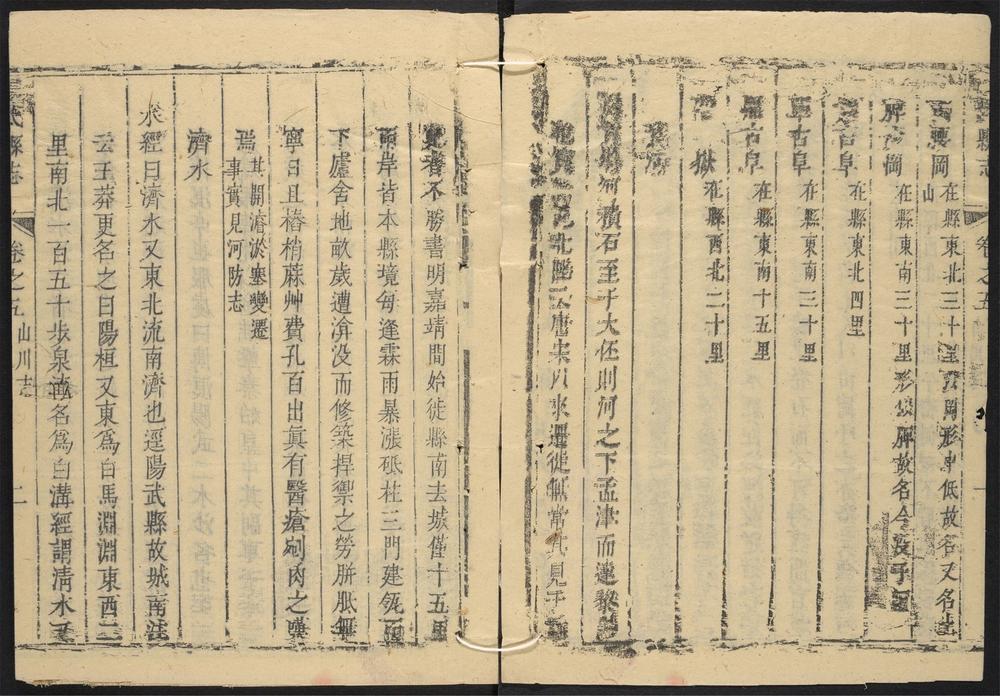 縣志
卷之五
岡 在縣東北三十里岡形卑低故名又名土山
岡 在縣東南三十里形似脾故名今
古阜 在縣東北四里
古阜 在縣東南三十里
古阜 在縣東南十五里
獄 在縣西北二十里
河
河積石至于大伾則河之下孟津而遷黎
北隅唐宋以來遷徙無常其見于
者不勝書明嘉靖間始徙縣南去城僅十五里
兩岸皆本縣境每逢霖雨暴漲砥柱三門建瓴而
下廬舍地畝歲遭渰沒而修築捍禦之勞胼胝無
寧日且樁梢蔴艸費孔百出眞有醫瘡剜肉之嘆
焉 其開濬淤塞變遷事實見河防志
濟水
水經曰濟水又東北流南濟也逕陽武縣故城南
云王莽更名之曰陽桓又東爲白馬淵淵東西二
里南北一百五十步泉流名爲白溝經謂清水又
縣志
卷之五
山川志
二